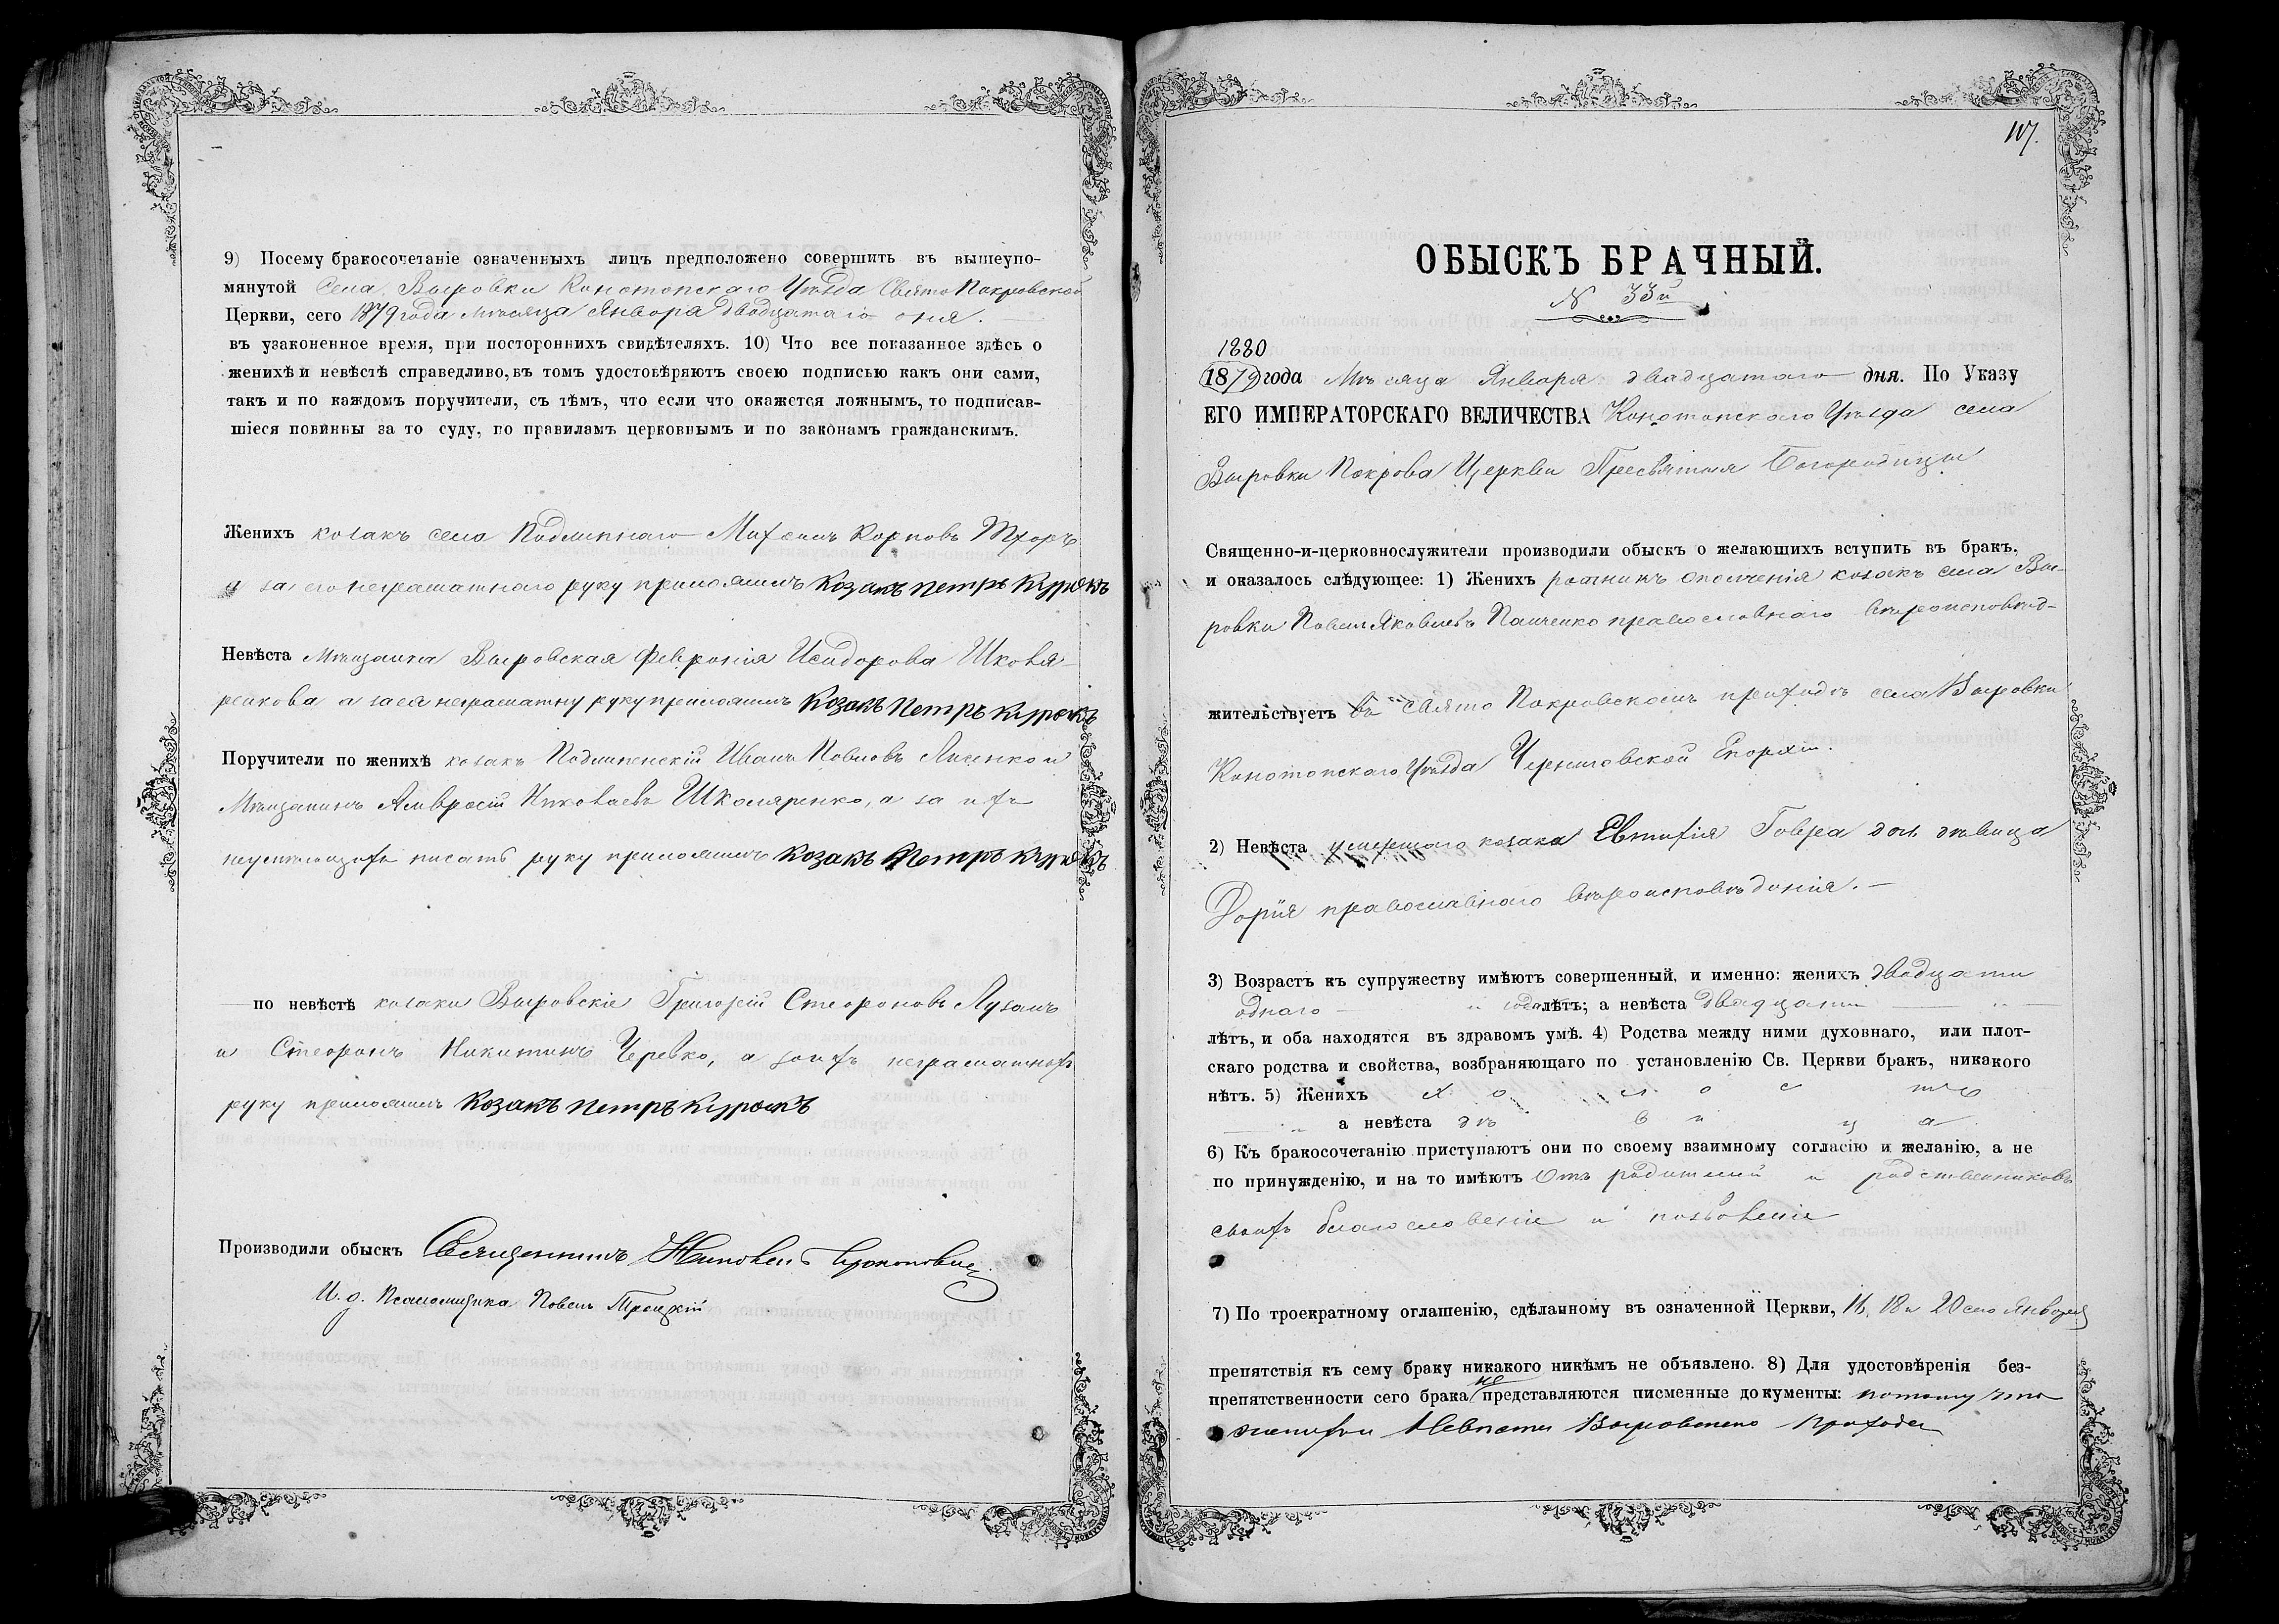 9) Посему бракосочетаніе означенныхъ лицъ предположено совершить въ вышеупо-
мянутой Села Выровки Конотопскаго Уѣзда Свято Покровской
Церкви, сего 1879 года мѣсяца Января двадцатаго дня.
въ узаконенное время, при постороннихъ свидѣтеляхъ. 10) Что все показанное здѣсь о
женихѣ и невѣстѣ справедливо, въ томъ удостовѣряютъ своею подписью какъ они сами,
такъ и по каждомъ поручители, съ тѣмъ, что если что окажется ложнымъ, то подписав-
шіеся повинны за то суду, по правиламъ церковнымъ и по законамъ гражданскимъ.
Женихъ козакъ села Подлипнаго Михаилъ Карповъ Тхоръ
а за его неграматнаго руку приложилъ Козакъ Петръ Курокъ
Невѣста Мѣщанка Выровская Февронія Исидорова Школя-
ренкова а за ея неграматну руку приложилъ Козакъ Петръ Курокъ
Поручители по женихѣ козакъ Подлипенскій Иванъ Павловъ и
Мѣщанинъ Амвросій Николаевъ Школяренко, а за ихъ
неумѣющихъ писать руку приложилъ Козакъ Петръ Курокъ
по невѣстѣ козаки Выровскіе Григорій Стефановъ Лузанъ
и Стефанъ Никитинъ Черевко, а за ихъ неграматныхъ
руку приложилъ Козакъ Петръ Курокъ
Производили обыскъ Священникъ
И. д. Псаломщика Павелъ Троицкій
107.
ОБЫСКЪ БРАЧНЫЙ.
N 33й
1880
1879 года Мѣсяца Января двадцатаго дня. По Указу
ЕГО ИМПЕРАТОРСКАГО ВЕЛИЧЕСТВА Конотопскаго Уѣзда села
Выровки Покрова Церкви Пресвятыя Богородицы
Священно-и-церковнослужители производили обыскъ о желающихъ вступить въ бракъ,
и оказалось слѣдующее: 1) Женихъ ратникъ ополченія козакъ села Вы-
ровки Павелъ Яковлевъ Панченко православнаго вѣроисповѣд-
жительствуетъ въ Свято Покровскомъ приходѣ села Выровки
Конотопскаго Уѣзда Черниговской Епархіи.
2) Невѣста умершаго козака Евтихія Говра дочь дѣвица
Дарія православнаго вѣроисповѣданія.
3) Возрастъ къ супружеству имѣютъ совершенный, и именно: женихъ двадцати
одного года лѣтъ; а невѣста двадцати
лѣтъ, и оба находятся въ здравомъ умѣ. 4) Родства между ними духовнаго, или плот-
скаго родства и свойства, возбраняющаго по установленію Св. Церкви бракъ, никакого
нѣтъ. 5) Женихъ холостъ
а невѣста дѣвица
6) Къ бракосочетанію приступаютъ они по своему взаимному согласію и желанію, а не
по принужденію, и на то имѣютъ Отъ родителей и родственниковъ
своихъ благословеніе и позволеніе
7) По троекратному оглашенію, сдѣланному въ означенной Церкви, 16, 18 и 20 сего Января
препятствія къ сему браку никакого никѣмъ не объявлено. 8) Для удостовѣренія без-
препятственности сего брака не представляются писменные документы: потому что
женихъ и Невѣста Выровскаго прихода